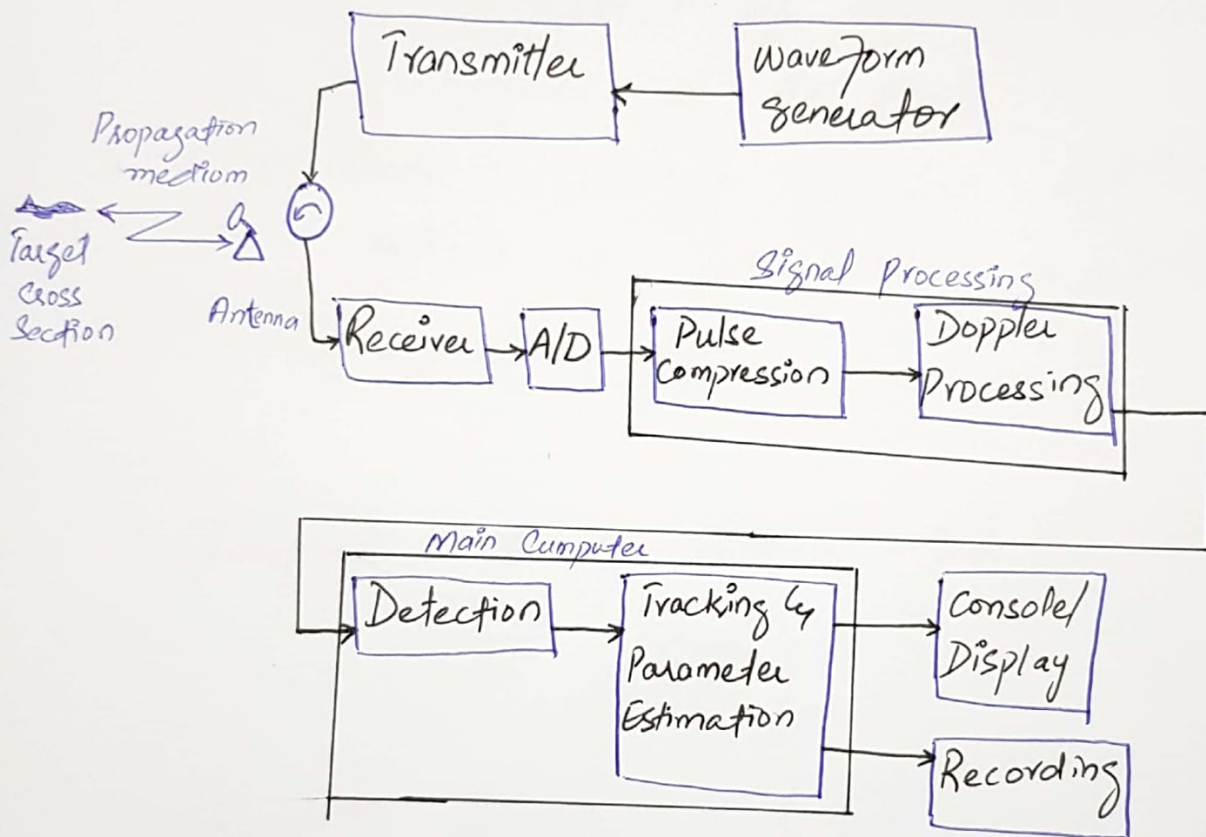 Transmitter
Waveform
generator
Propagation
medium
Target
Cross
Section
Antenna
Receiver
A/D
Signal Processing
Pulse
Compression
Doppler
Processing
Main Cumputer
Detection
Tracking &
Parameter
Estimation
Console/
Display
Recording